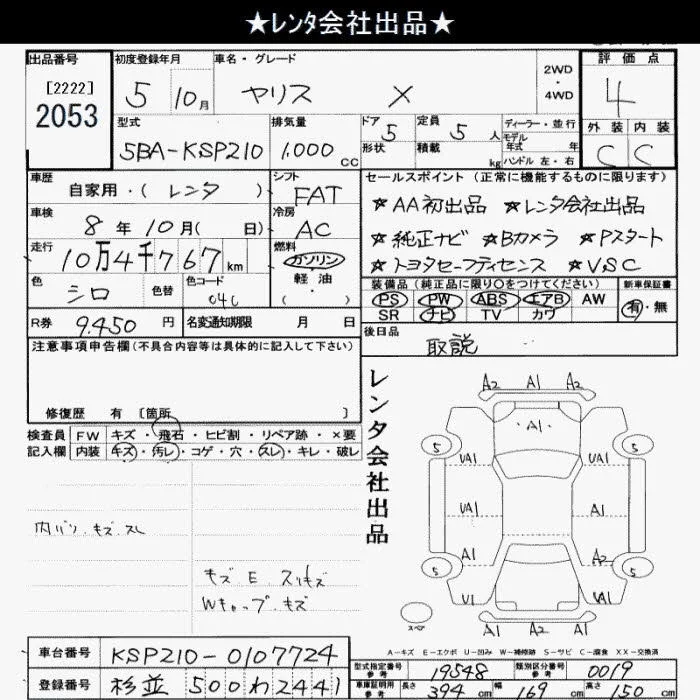 ★ﾚﾝﾀ会社出品★
出品番号 初度登録年月 車名・グレード 2WD・4WD 評価点
[2222]
2053
5 10月 ヤリス X 4
型式 排気量 ドア 定員 ディーラー・並行 外装 内装
5BA-KSP210 1,000cc 5 5人 モデル年式 年
形状 積載 kg ハンドル 左・右 C C
車歴 シフト セールスポイント(正常に機能するものに限ります)
自家用・(レンタ) FAT ★AA初出品 ★レンタ会社出品
車検 冷房
8年10月(日) AC ★純正ナビ ★Bカメラ ★Pスタート
走行 燃料
10万4千767km ガソリン・軽油・( ) ★トヨタセーフティセンス ★VSC
色 色替 色コード 装備品(純正品に限り○をつけてください) 新車保証書
シロ 040 PS PW ABS エアB AW 有・無
SR ナビ TV カワ
R券 9,450円 名変通知期限 月 日 後日品
取説
注意事項申告欄(不具合内容等は具体的に記入して下さい)
修復歴 有 [箇所 ]
レンタ会社出品
検査員 FW キズ・飛石・ヒビ割・リペア跡・×要
記入欄 内装 キズ・汚レ・コゲ・穴・スレ・キレ・破レ
内バリ キズ スレ
キズ E スリキズ
Wキャップ キズ
A2 A1 A2
A1
5 5
UA1 UA1
UA1 A1
A1 A2
5 5
U1 A1
A1
スペア
A-キズ E-エクボ U-凹み W-補修跡 S-サビ C-腐食 XX-交換済
車台番号 KSP210-0107724 型式指定番号 参考 19548 類別区分番号 参考 0019
登録番号 杉並 500 わ 2441 車庫証明用 参考 長さ 394cm 幅 169cm 高さ 150cm